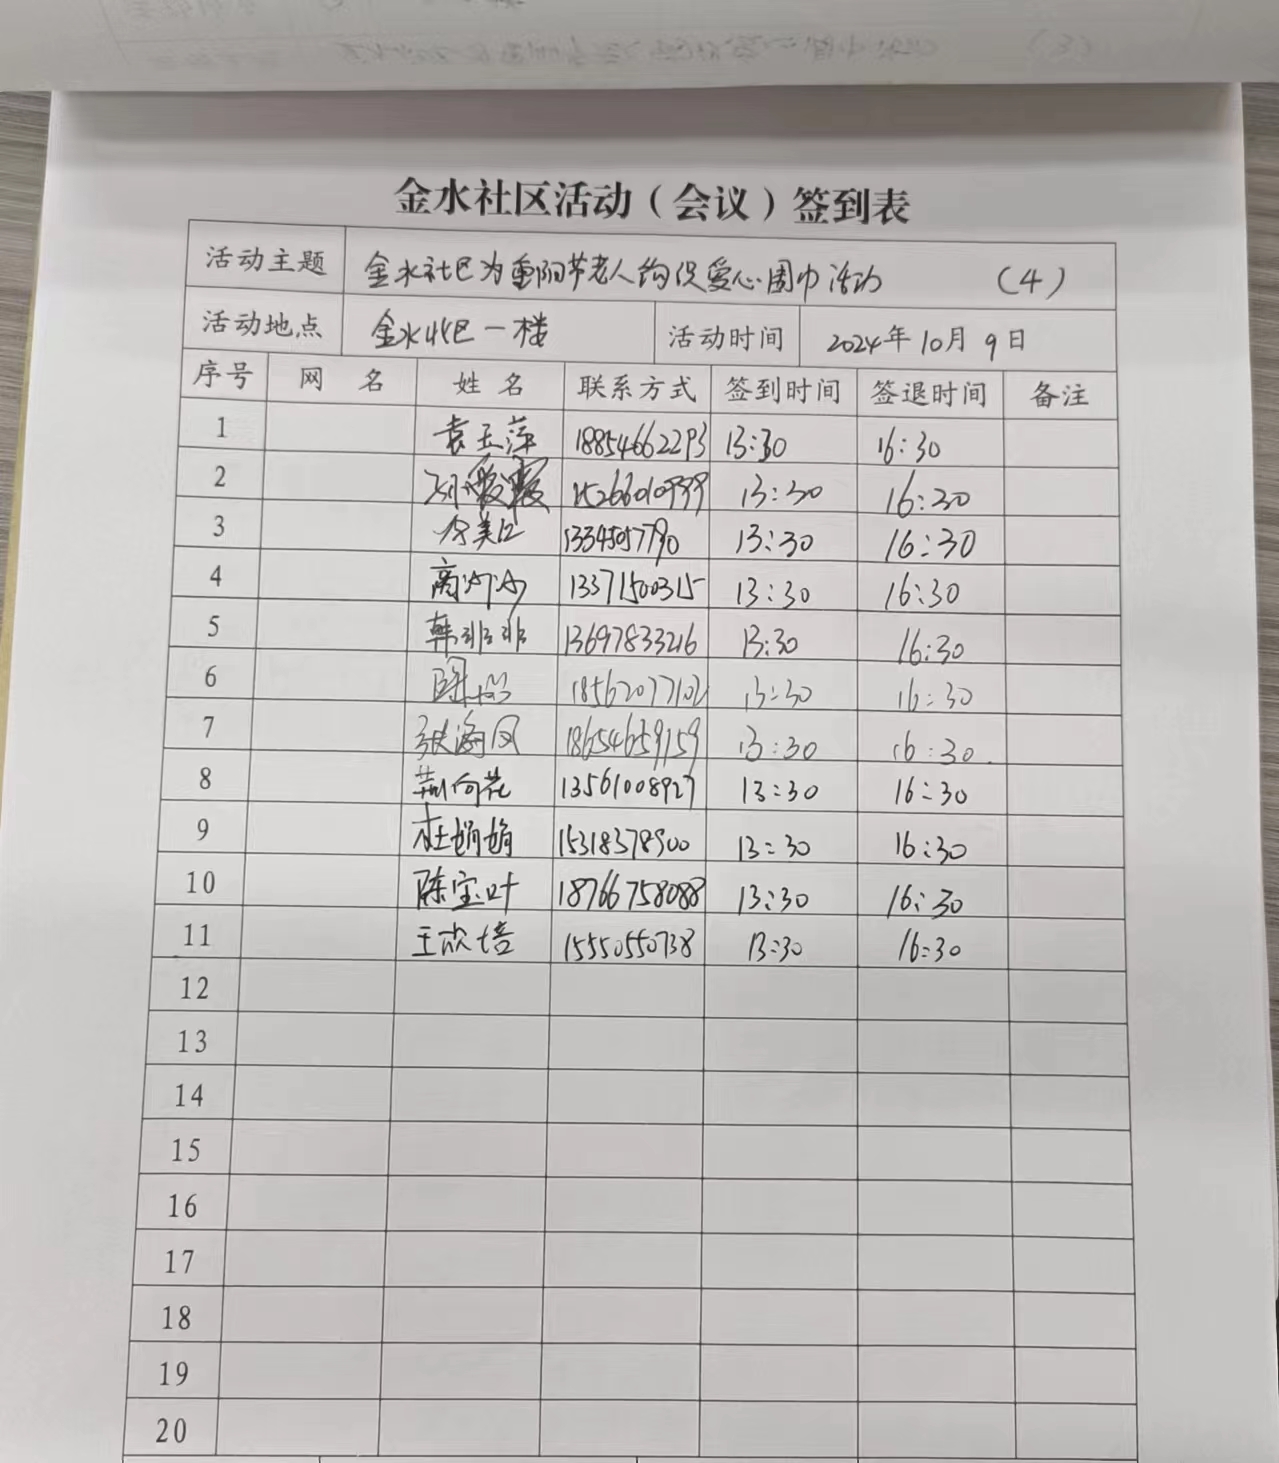 金水社区活动（会议）签到表
活动主题 金水社区为重阳节老人钩织爱心围巾活动 （4）
活动地点 金水社区一楼 活动时间 2024年10月9日
序号 网名 姓名 联系方式 签到时间 签退时间 备注
1 袁玉萍 18854662293 13:30 16:30
2 13:30 16:30
3 13345057790 13:30 16:30
4 高沙沙 13371500315 13:30 16:30
5 韩非非 13697833216 13:30 16:30
6 18562077102 13:30 16:30
7 张海凤 18654659159 13:30 16:30
8 荆向花 13561008927 13:30 16:30
9 杜娟娟 15318378900 13:30 16:30
10 陈宝叶 18766758088 13:30 16:30
11 王欣培 15550550738 13:30 16:30
12
13
14
15
16
17
18
19
20